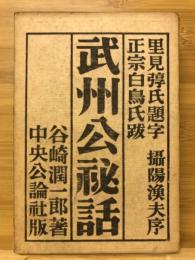 里見弴氏題字　攝陽漁夫序
正宗白鳥氏跋
武州公祕話
谷崎潤一郎著
中央公論社版